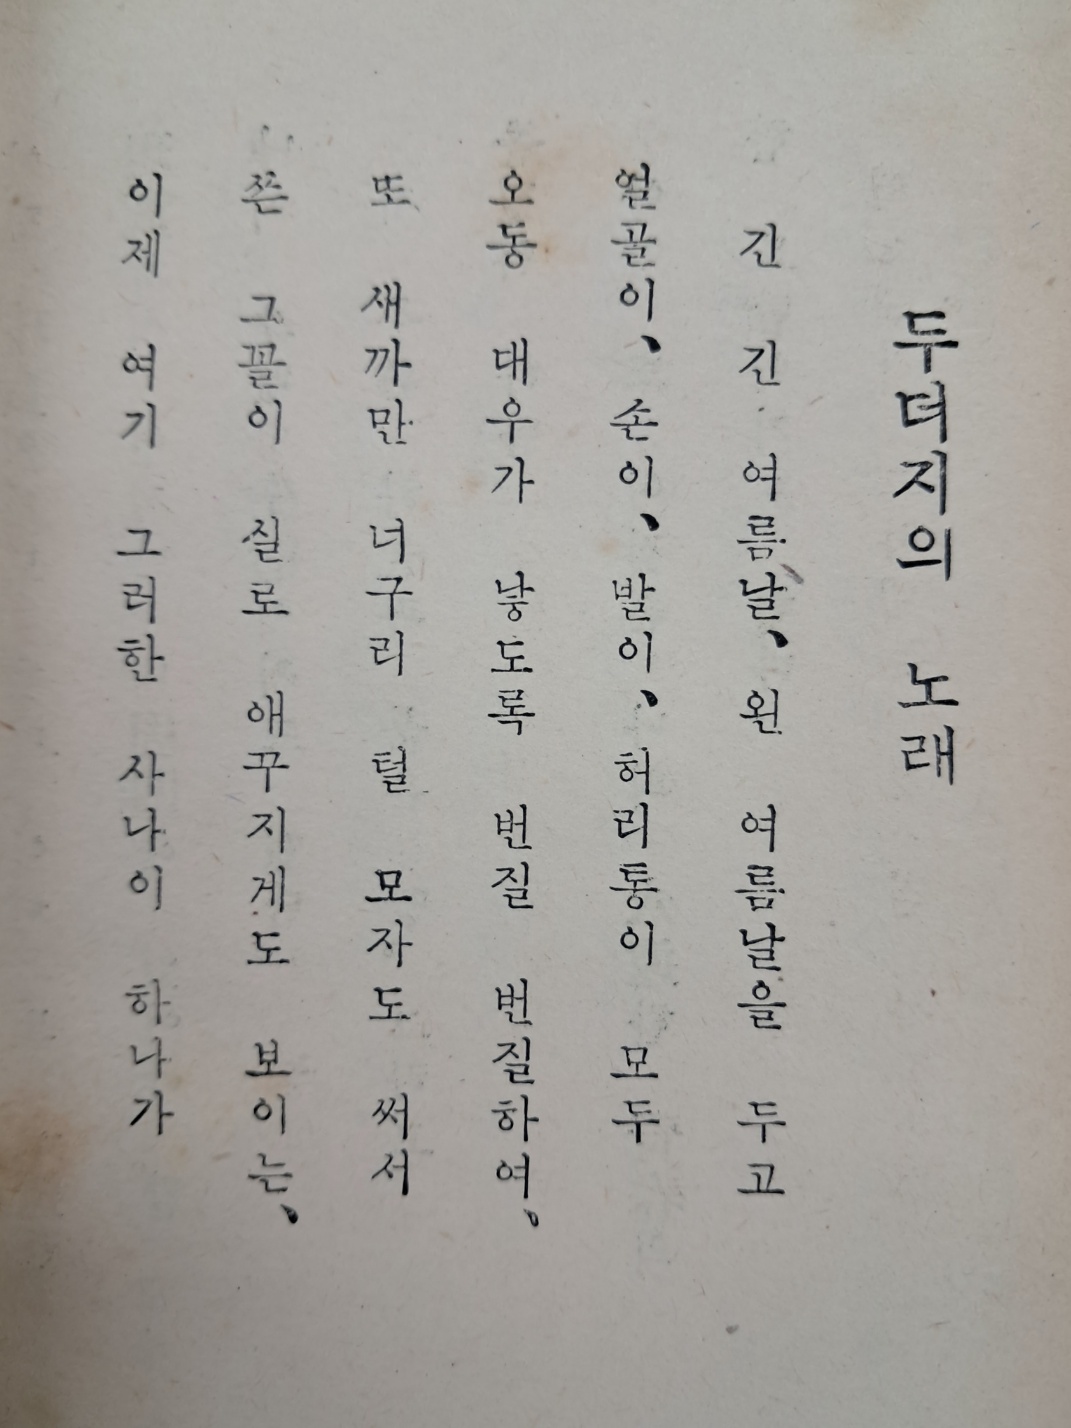 두더지의 노래
긴 긴 여름날、왼 여름날을 두고
얼골이、손이、발이、허리통이 모두
오동 대우가 낳도록 번질 번질하여、
또 새까만 너구리 털 모자도 써서
쯘 그꼴이 실로 애꾸지게도 보이는、
이제 여기 그러한 사나이 하나가